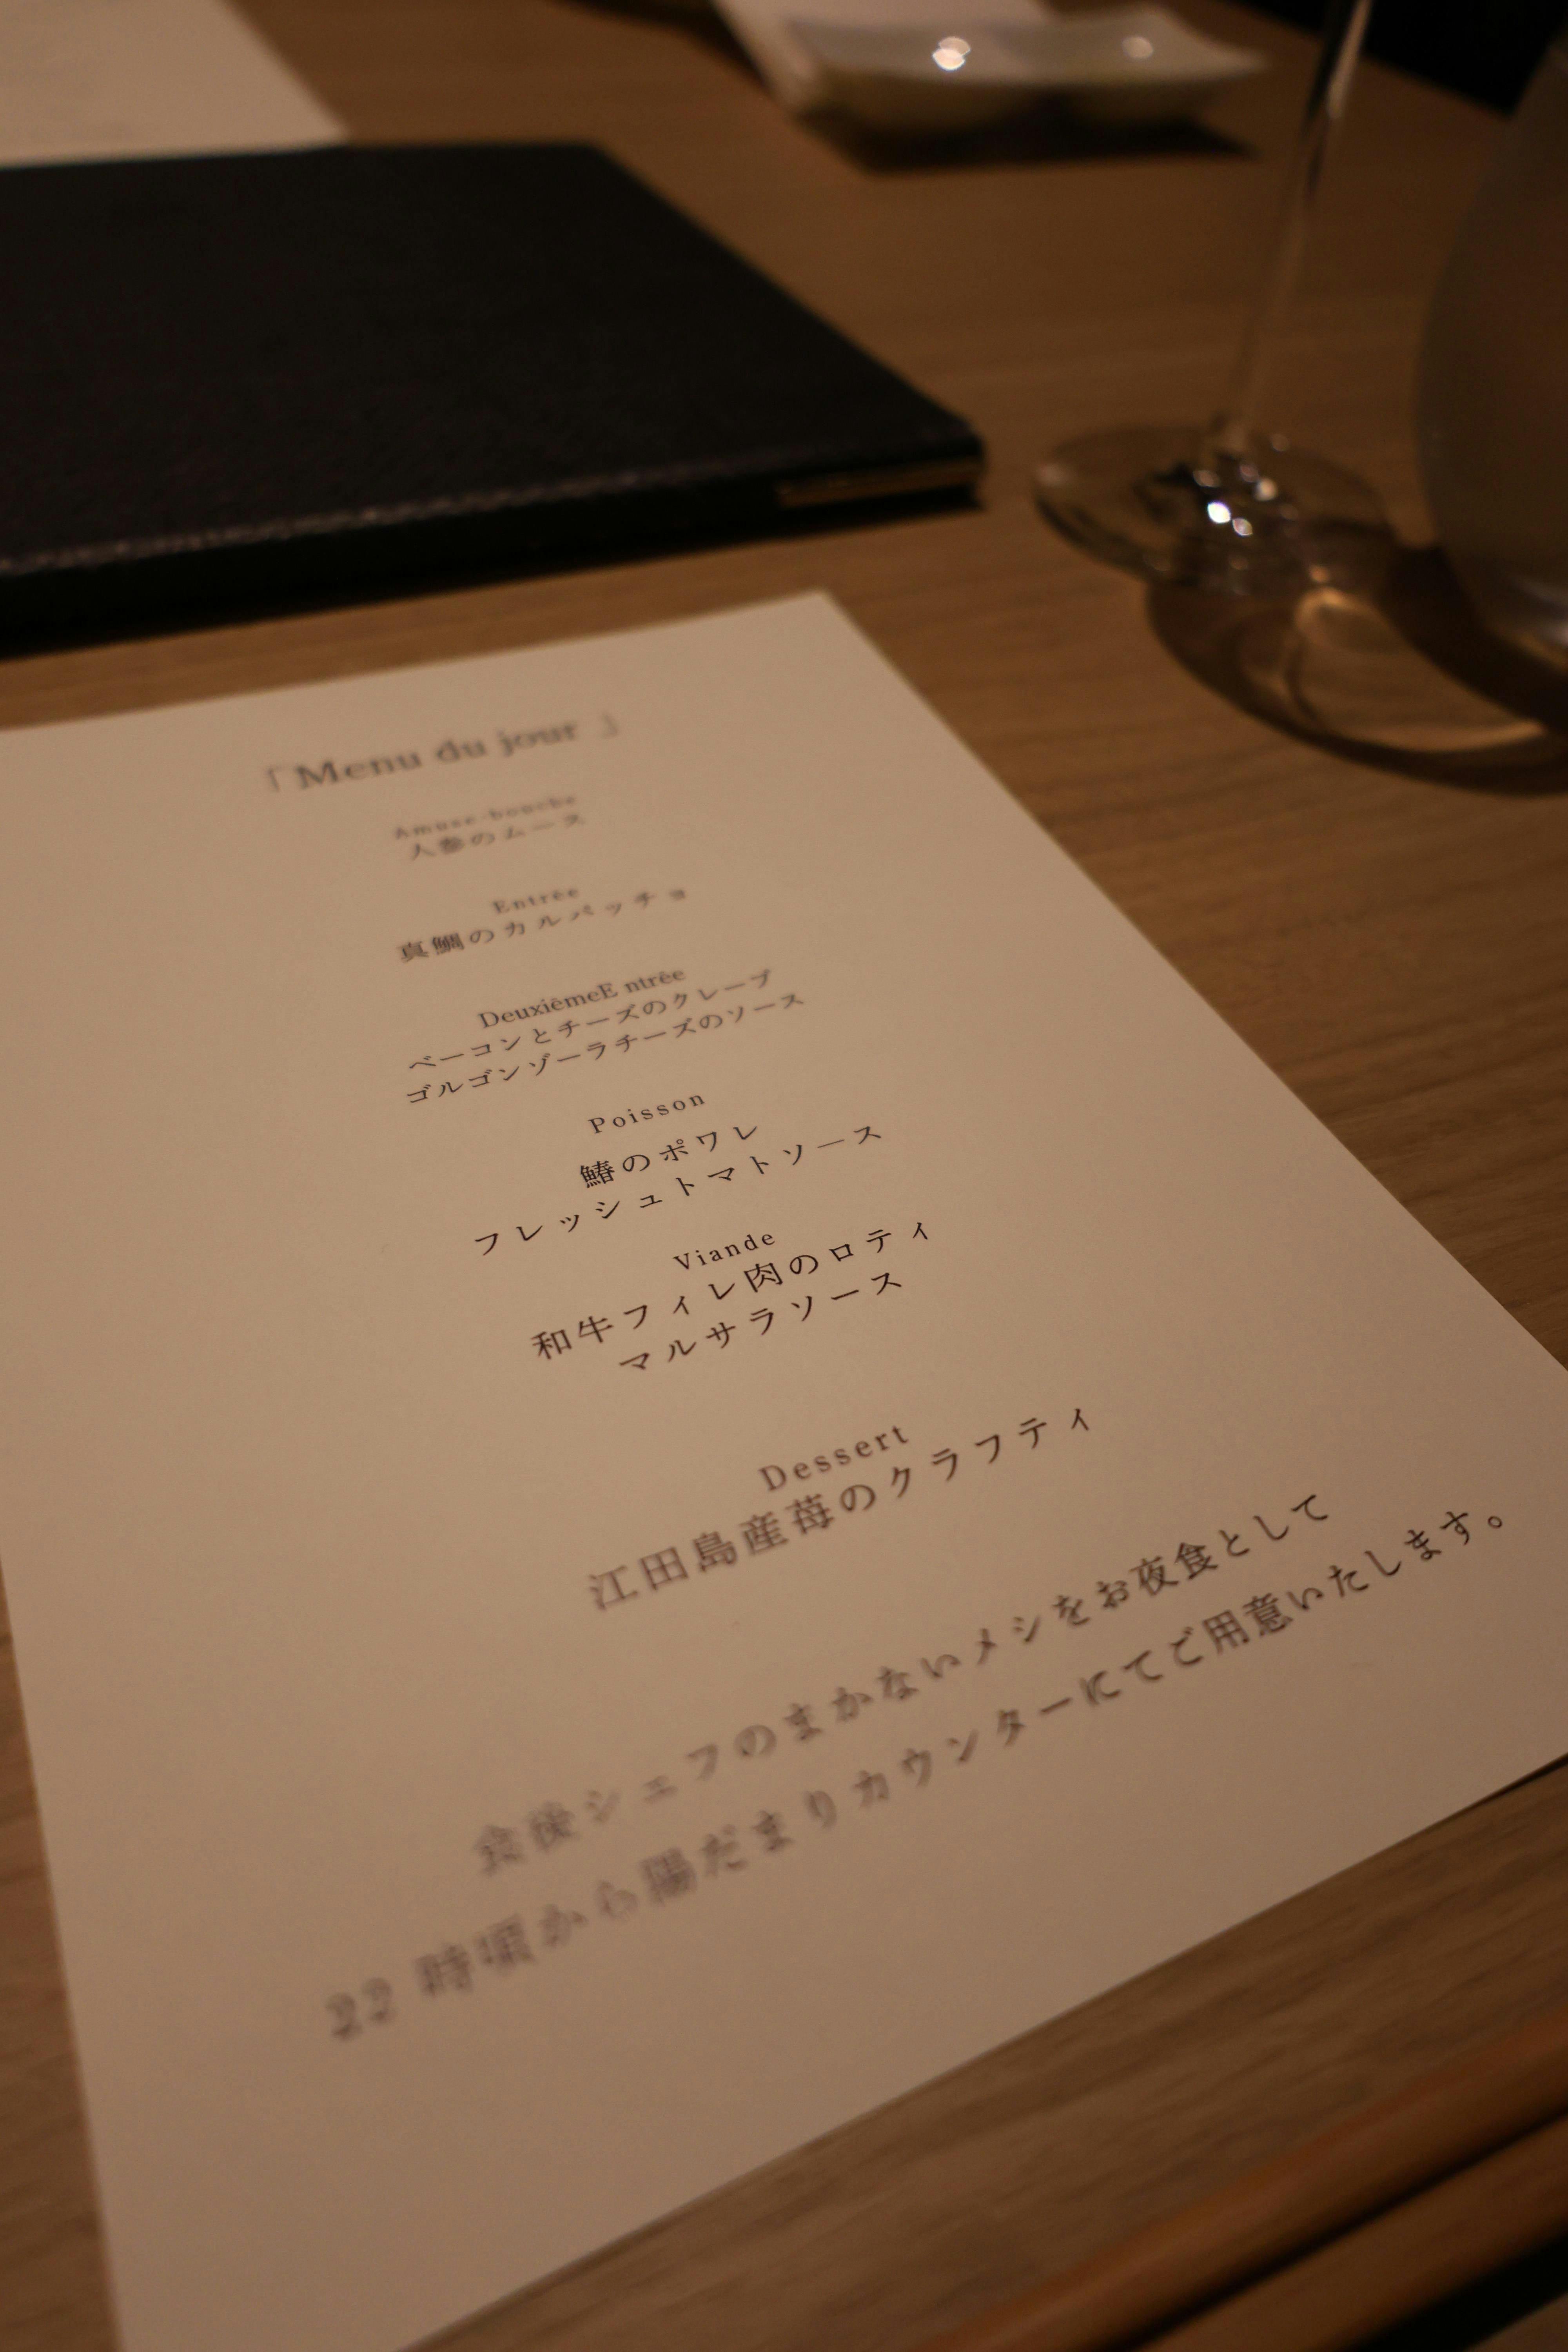 「Menu du jour 」
Amuse-bouche
人参のムース
Entrée
真鯛のカルパッチョ
DeuxièmeE ntrée
ベーコンとチーズのクレープ
ゴルゴンゾーラチーズのソース
Poisson
鰆のポワレ
フレッシュトマトソース
Viande
和牛フィレ肉のロティ
マルサラソース
Dessert
江田島産苺のクラフティ
食後シェフのまかないメシをお夜食として
22 時頃から陽だまりカウンターにてご用意いたします。